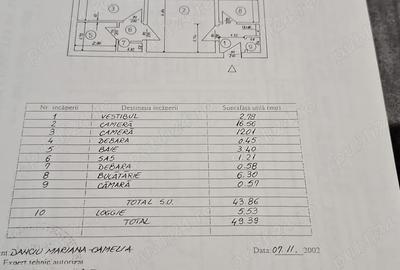 3
2
8
6
5
7
1
9
Nr. încăperii Destinația încăperii Suprafața utilă (mp)
1 VESTIBUL 2.78
2 CAMERĂ 16.56
3 CAMERĂ 12.01
4 DEBARA 0.45
5 BAIE 3.40
6 SAS 1.21
7 DEBARA 0.58
8 BUCĂTĂRIE 6.30
9 CĂMARĂ 0.57
TOTAL S.U. 43.86
10 LOGGIE 5.53
TOTAL 49.39
DANCIU MARIANA-CAMELIA Data 07.11. 2002
Expert tehnic autorizat